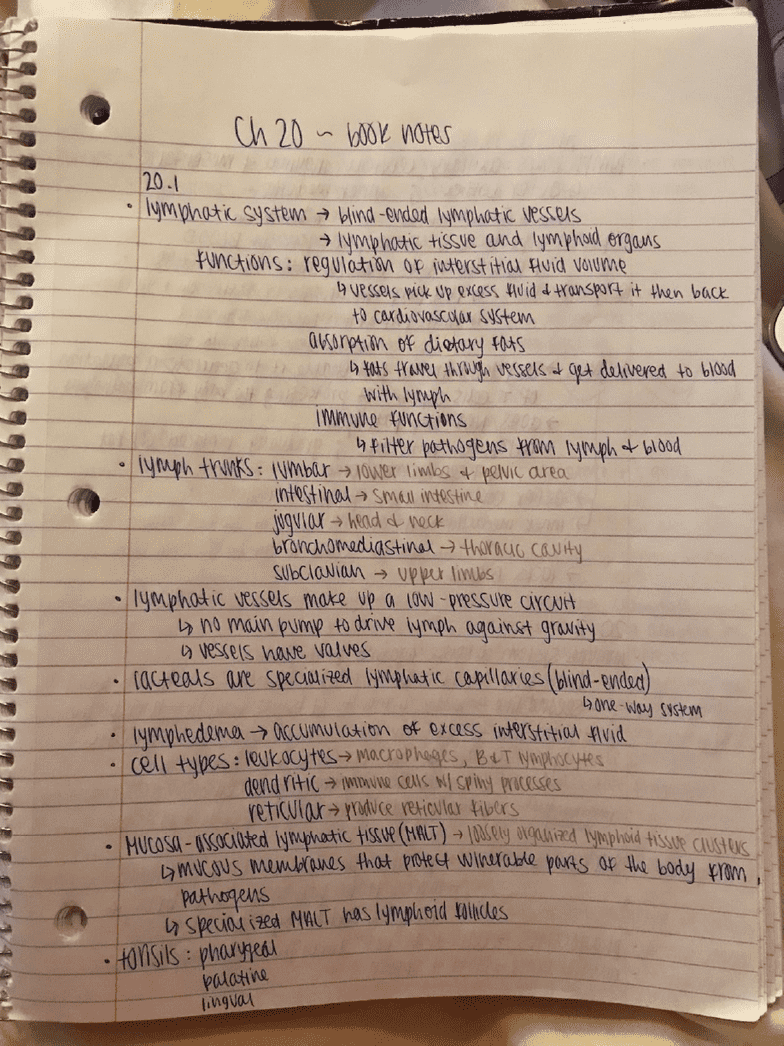 Ch 20 ~ book notes
20.1
• lymphatic system → blind-ended lymphatic vessels
→ lymphatic tissue and lymphoid organs
functions: regulation of interstitial fluid volume
↳ vessels pick up excess fluid & transport it then back
to cardiovascular system
absorption of dietary fats
↳ fats travel through vessels & get delivered to blood
with lymph
immune functions
↳ filter pathogens from lymph & blood
• lymph trunks: lumbar → lower limbs & pelvic area
intestinal → small intestine
jugular → head & neck
bronchomediastinal → thoracic cavity
subclavian → upper limbs
• lymphatic vessels make up a low-pressure circuit
↳ no main pump to drive lymph against gravity
↳ vessels have valves
• lacteals are specialized lymphatic capillaries (blind-ended)
↳ one-way system
• lymphedema → accumulation of excess interstitial fluid
• cell types: leukocytes → macrophages, B&T lymphocytes
dendritic → immune cells w/ spiny processes
reticular → produce reticular fibers
• Mucosa-associated lymphatic tissue (MALT) → loosely organized lymphoid tissue clusters
↳ mucous membranes that protect vulnerable parts of the body from
pathogens
↳ specialized MALT has lymphoid follicles
• tonsils: pharygeal
palatine
lingual